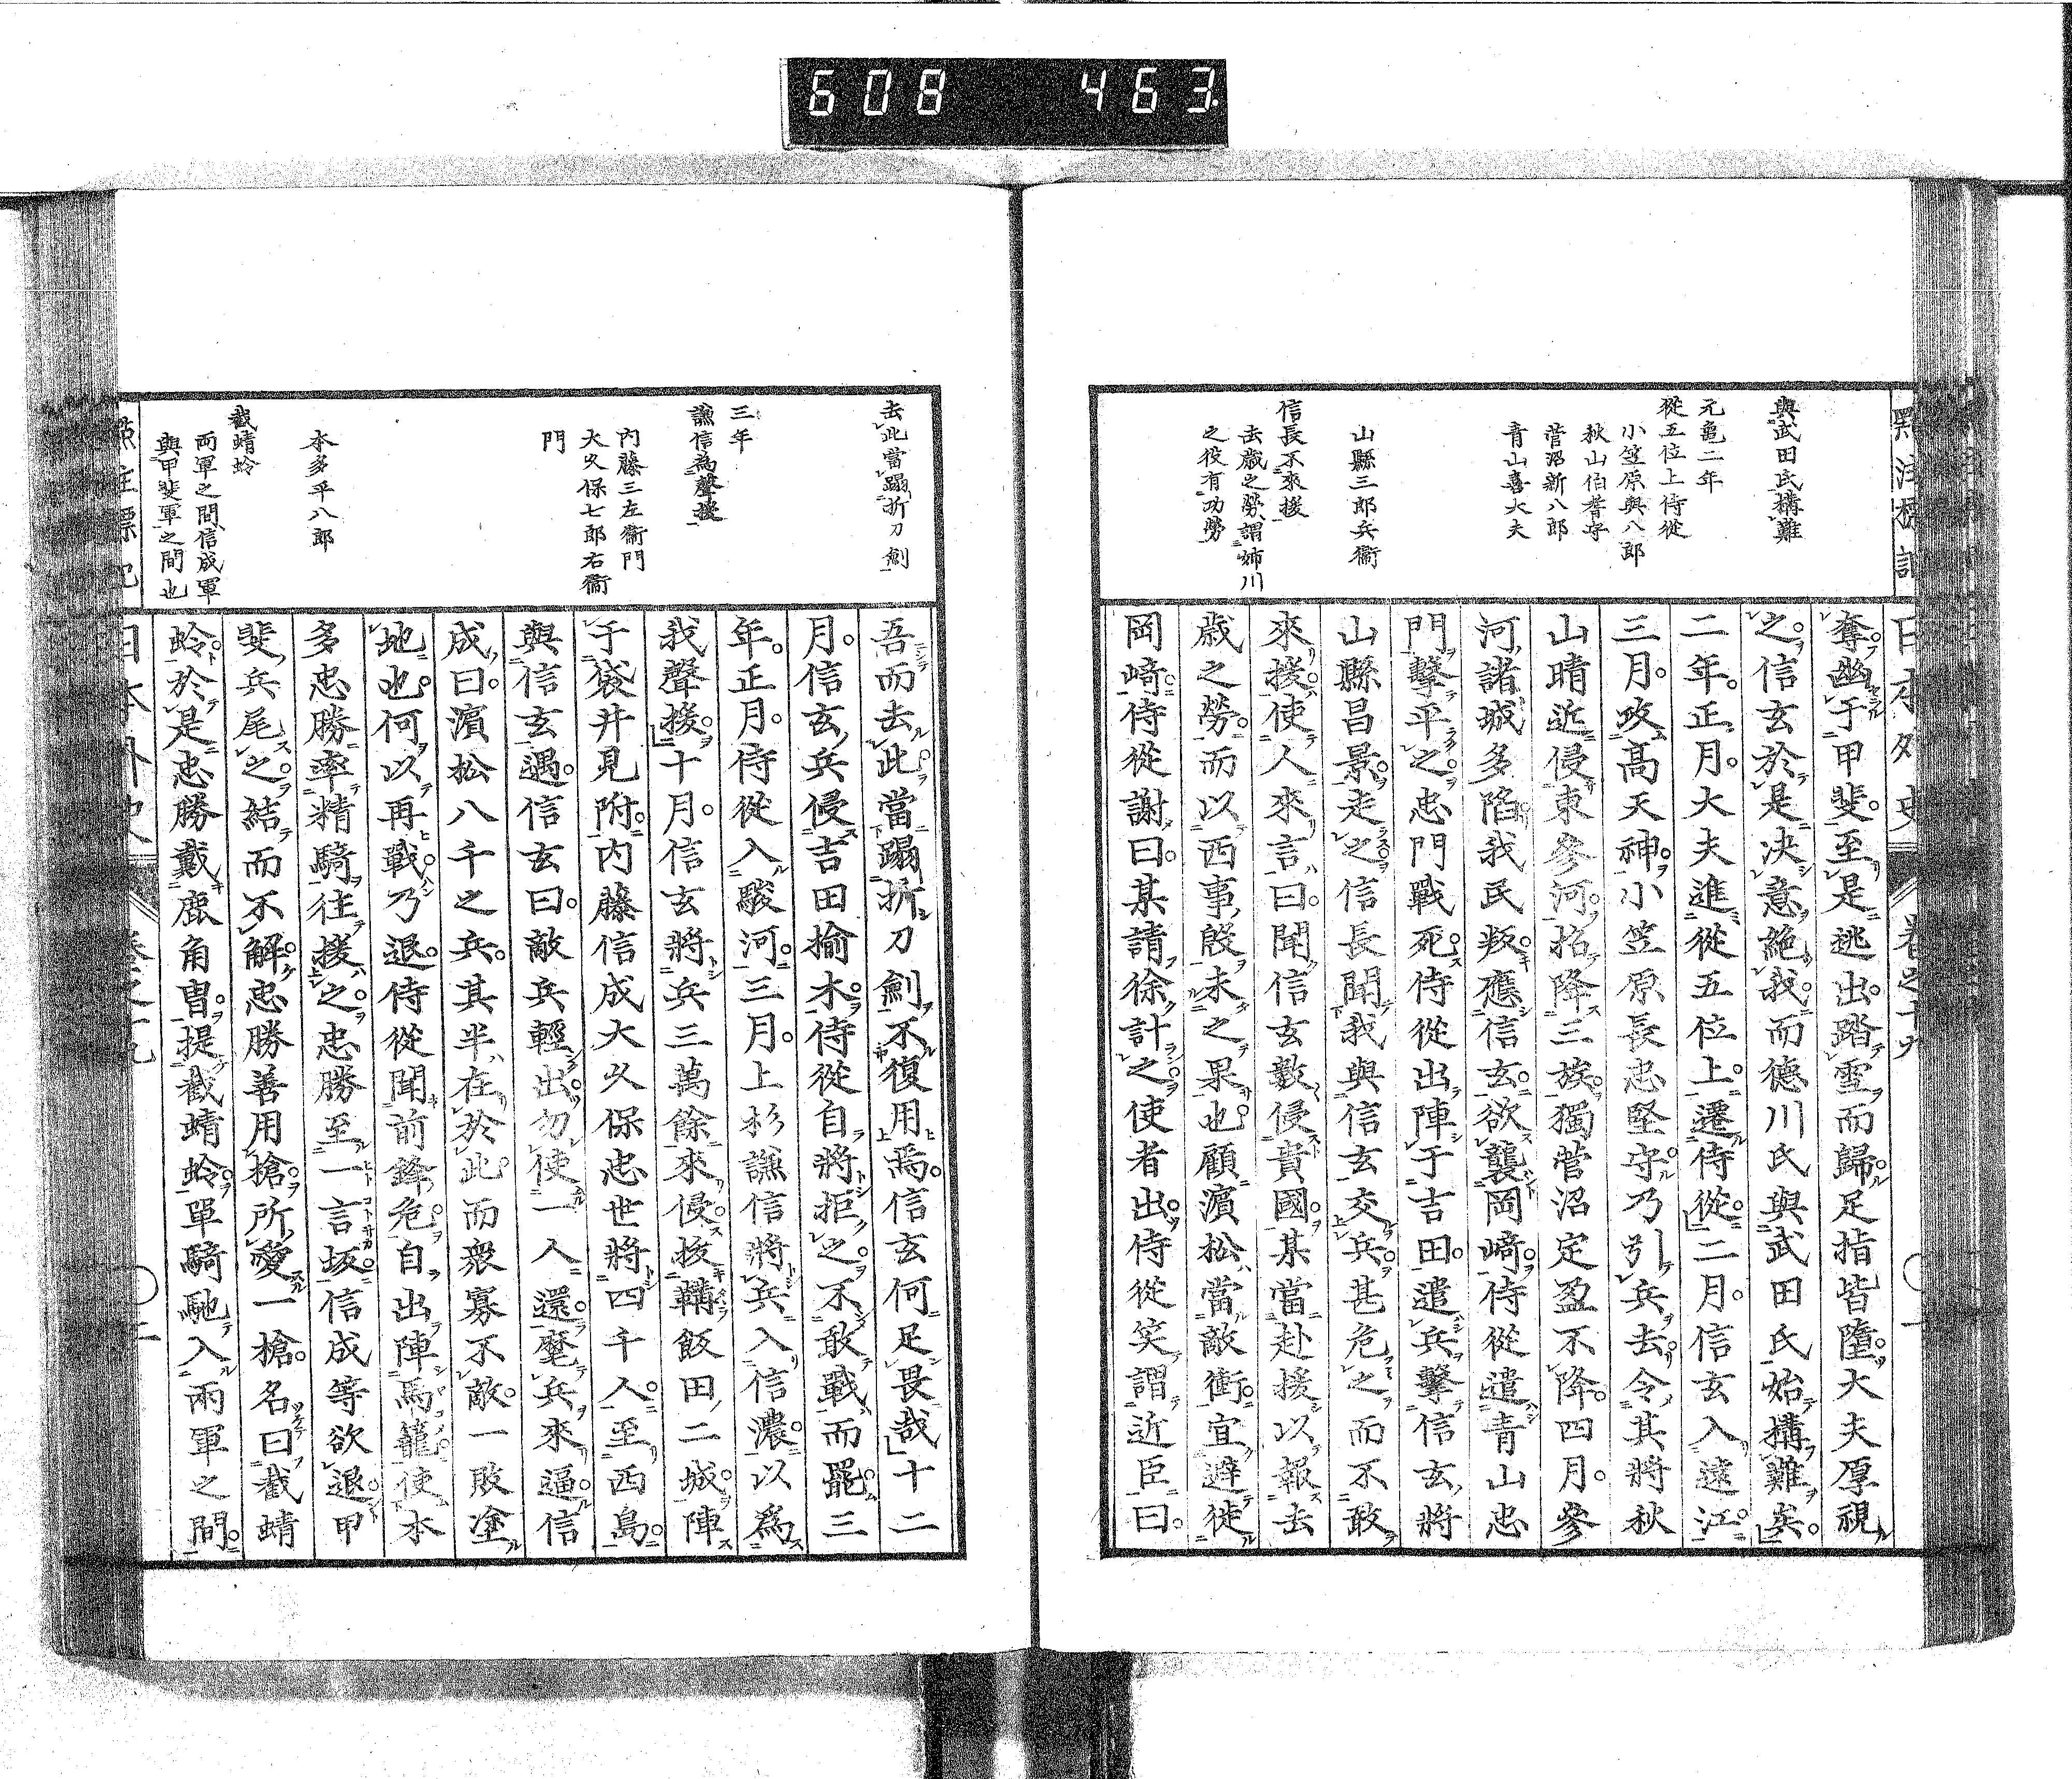 608 463
點註標記
日本外史 卷之十九
與武田氏構難
元龜二年
從五位上侍從
小笠原與八郎
秋山伯耆守
菅沼新八郎
青山喜大夫
山縣三郎兵衞
信長不來援
去歲之勞謂姉川
之役有功勞
奪。幽于甲斐。至是逃出。踏雪而歸。足指皆墮。大夫厚視
之。信玄於是決意絕我。而德川氏與武田氏始構難矣。」
二年。正月。大夫進從五位上。遷侍從。」二月。信玄入遠江。
三月。攻高天神。小笠原長忠堅守。乃引兵去。令其將秋
山晴近侵東參河。招降三族。獨菅沼定盈不降。四月。參
河諸城多陷。我民叛應信玄。欲襲岡崎。侍從遣青山忠
門擊平之。忠門戰死。侍從出陣于吉田。遣兵擊信玄將
山縣昌景。走之。信長聞我與信玄交兵。甚危之。而不敢
來援。使人來言曰。聞信玄數侵貴國。某當赴援以報去
歲之勞。而以西事殷。未之果也。顧濱松當敵衝。宜避徙
岡崎。侍從謝曰。某請徐計之。使者出。侍從笑謂近臣曰。
去此當蹋折刀劍
三年
謙信爲聲援
內藤三左衞門
大久保七郎右衞
門
本多平八郎
截蜻蛉
兩軍之間信成軍
與甲斐軍之間也
吾而去此。當蹋折刀劍。不復用焉。信玄何足畏哉」十二
月。信玄兵侵吉田揄木。侍從自將拒之。不敢戰而罷。三
年。正月。侍從入駿河。三月。上杉謙信將兵入信濃。以爲
我聲援。」十月。信玄將兵三萬餘來侵。拔鞴飯田二城。陣
于袋井見附。內藤信成大久保忠世將四千人。至西島。
與信玄遇。信玄曰。敵兵輕出。勿使一人還。麾兵來逼。信
成曰。濱松八千之兵。其半在於此。而衆寡不敵。一敗塗
地也。何以再戰。乃退。侍從聞前鋒危。自出陣馬籠。使本
多忠勝率精騎往援之。忠勝至一言坂。信成等欲退。甲
斐兵尾之。結而不解。忠勝善用槍。所愛一槍。名曰截蜻
蛉。於是忠勝戴鹿角冑。提截蜻蛉。單騎馳入兩軍之間。
點註標記
日本外史 卷之十九 〇二